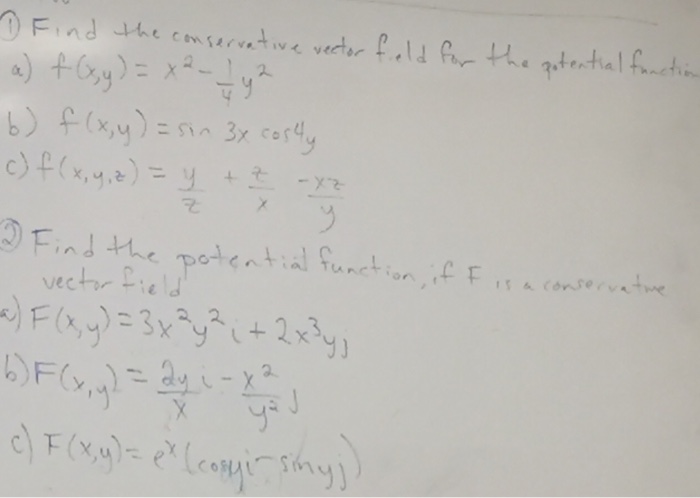 ① Find the conservative vector field for the potential function
a) f(x,y) = x² - 1/4 y²
b) f(x,y) = sin 3x cos4y
c) f(x,y,z) = y/z + z/x - xz/y
② Find the potential function, if F is a conservative
vector field
a) F(x,y) = 3x²y² i + 2x³y j
b) F(x,y) = 2y/x i - x²/y² j
c) F(x,y) = eˣ(cosyi - sinyj)